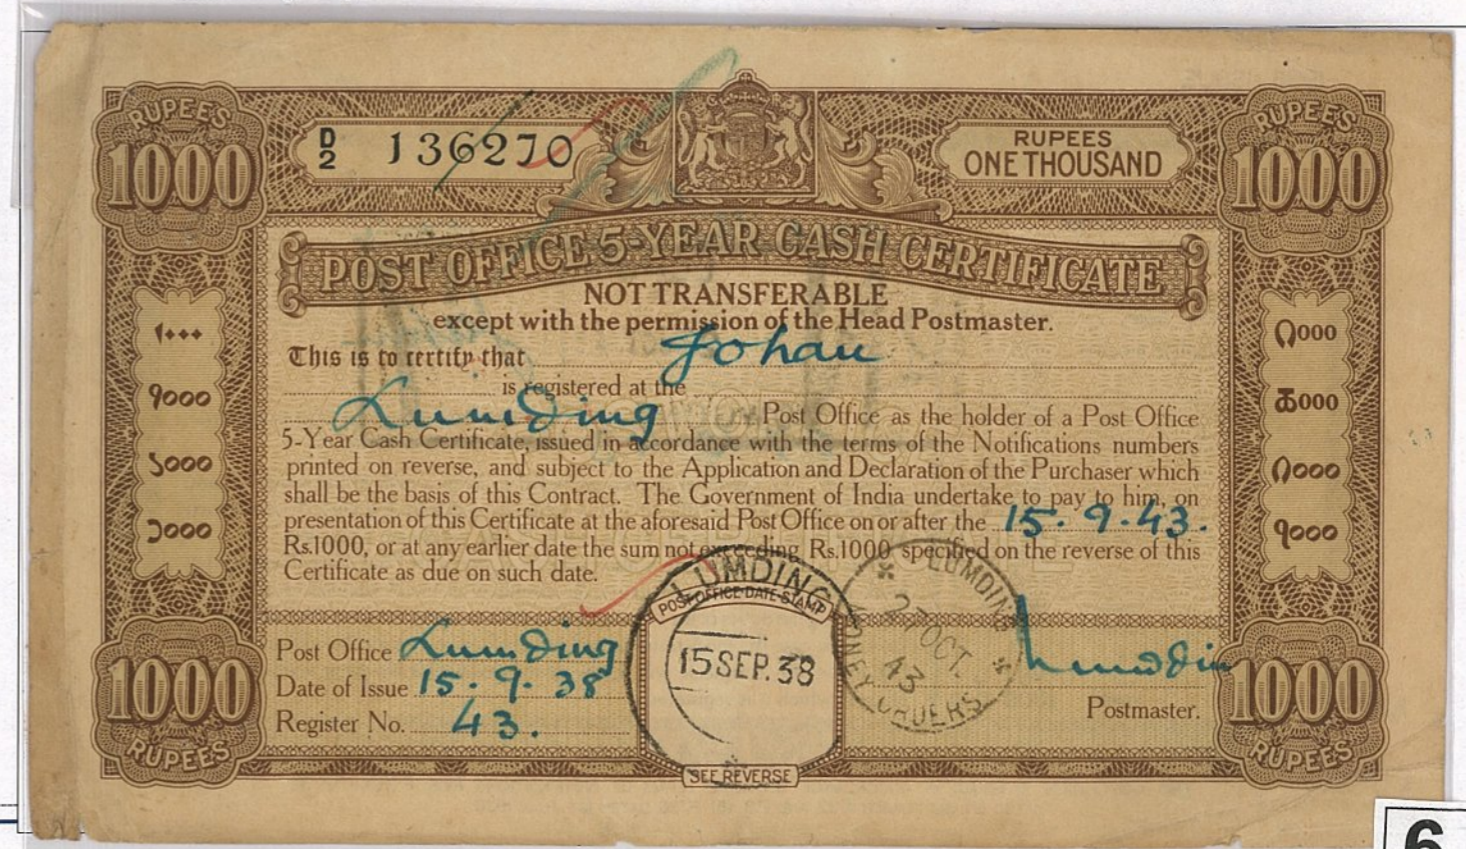 RUPEES
1000
D/2 136270
RUPEES
ONE THOUSAND
RUPEES
1000
POST OFFICE 5-YEAR CASH CERTIFICATE
NOT TRANSFERABLE
except with the permission of the Head Postmaster.
This is to certify that Johan
is registered at the
Lumding Post Office as the holder of a Post Office
5-Year Cash Certificate, issued in accordance with the terms of the Notifications numbers
printed on reverse, and subject to the Application and Declaration of the Purchaser which
shall be the basis of this Contract. The Government of India undertake to pay to him, on
presentation of this Certificate at the aforesaid Post Office on or after the 15.9.43.
Rs.1000, or at any earlier date the sum not exceeding Rs.1000 specified on the reverse of this
Certificate as due on such date.
۱۰۰۰
१०००
১০০০
၁၀၀၀
Post Office Lumding
Date of Issue 15.9.38
Register No. 43.
LUMDING
POST OFFICE DATE STAMP
15 SEP. 38
SEE REVERSE
LUMDING
27 OCT.
43
MONEY ORDERS
Postmaster.
1000
RUPEES
1000
RUPEES
6